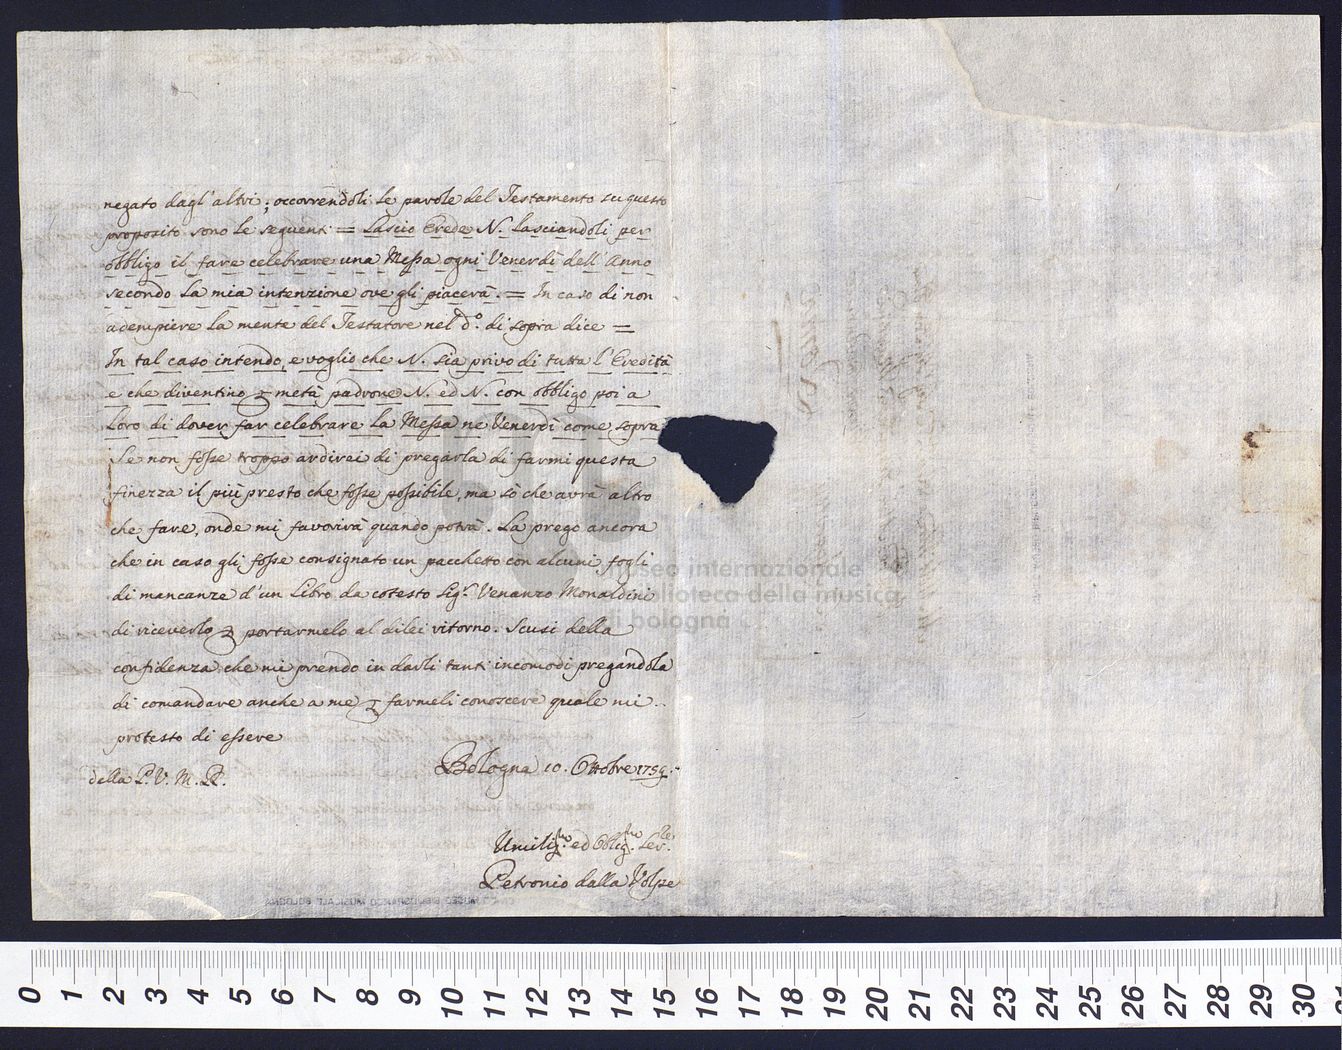 negato dagl'altri; occorrendoli le parole del Testamento su questo
proposito sono le seguenti = Lascio Erede N. lasciandoli per
obbligo il fare celebrare una Messa ogni Venerdì dell'Anno
secondo la mia intenzione ove gli piacerà. = In caso di non
adempiere la mente del Testatore nel d.o di sopra dice =
In tal caso intendo, e voglio che N. sia privo di tutta l'Eredità
e che diventino p metà padrone N. ed N. con obbligo poi a
Loro di dover far celebrare la Messa ne Venerdì come sopra
Se non fosse troppo ardirei di pregarla di farmi questa
finezza il più presto che fosse possibile, ma sò che avrà altro
che fare, onde mi favorirà quando potrà. La prego ancora
che in caso gli fosse consignato un pacchetto con alcuni fogli
di mancanze d'un Libro da cotesto Sig.r Venanzo Monaldini
di riceverlo p portarmelo al dilei ritorno. Scusi della
confidenza che mi prendo in darli tanti incomodi pregandola
di comandare anche a me p farmeli conoscere quale mi
protesto di essere
della P. V. M. R.
Bologna 10. Ottobre 1759.
Umiliss.mo ed Obblig.mo Ser.re
Petronio dalla Volpe
museo internazionale
biblioteca della musica
di bologna
MUSEO BIBLIOGRAFICO MUSICALE BOLOGNA
0 1 2 3 4 5 6 7 8 9 10 11 12 13 14 15 16 17 18 19 20 21 22 23 24 25 26 27 28 29 30